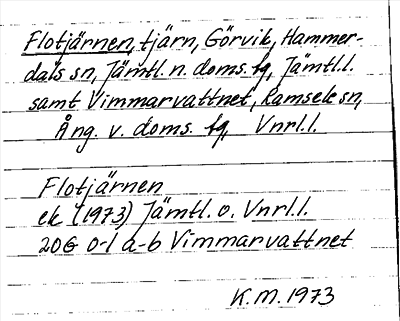 Flotjärnen, tjärn, Görvik, Hammer-
dals sn, Jämtl. n. doms. fg, Jämtl.l.
samt Vimmarvattnet, Ramsele sn,
Ång. v. doms. fg, Vnrl.l.
Flotjärnen
ek (1973) Jämtl. o. Vnrl.l.
20G 0-1 a-b Vimmarvattnet
K.M. 1973